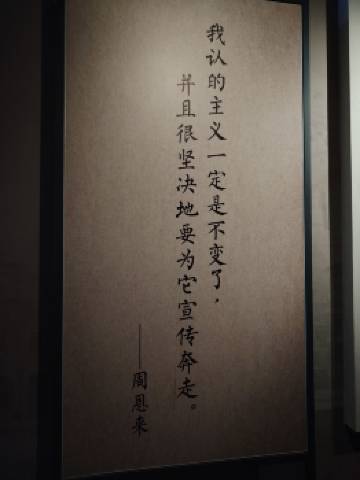 我认的主义一定是不变了，
并且很坚决地要为它宣传奔走。
——周恩来